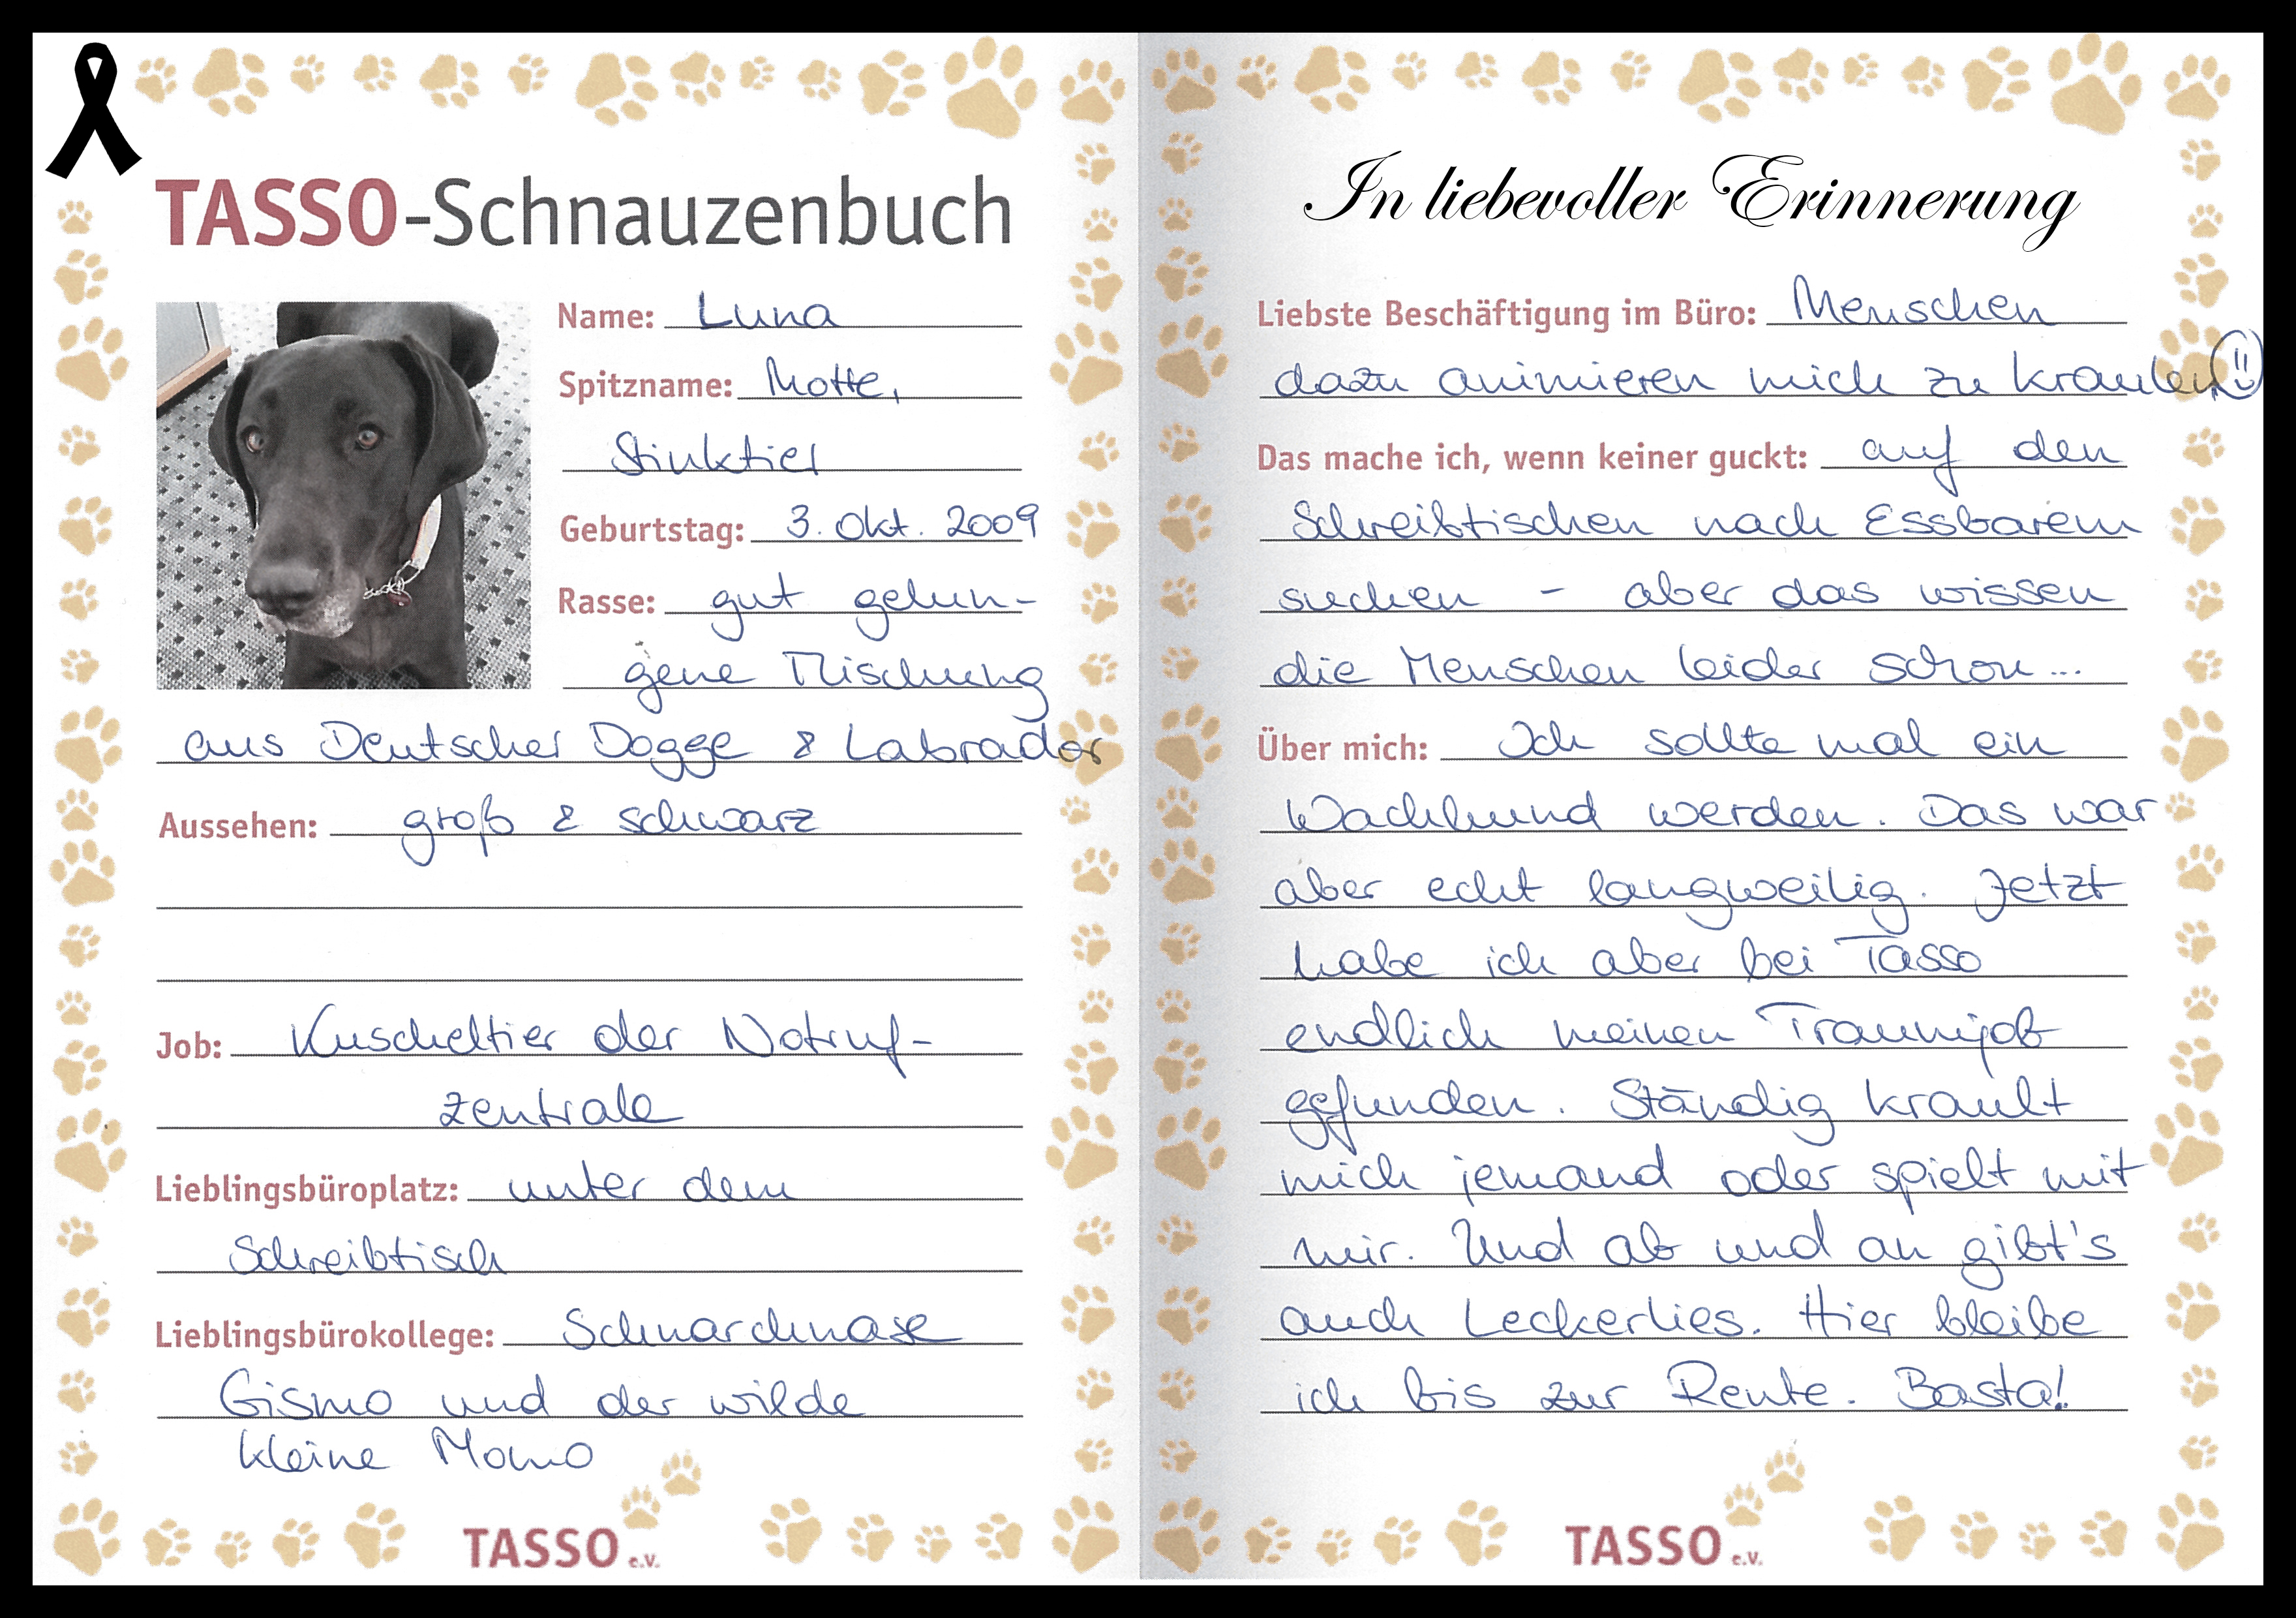 TASSO-Schnauzenbuch
Name: Luna
Spitzname: Motte,
Stinktier
Geburtstag: 3. Okt. 2009
Rasse: gut gelun-
gene Mischung
aus Deutscher Dogge & Labrador
Aussehen: groß & schwarz
Job: Kuscheltier der Notruf-
zentrale
Lieblingsbüroplatz: unter dem
Schreibtisch
Lieblingsbürokollege: Schnarchnase
Gismo und der wilde
kleine Momo
TASSO e.V.
In liebevoller Erinnerung
Liebste Beschäftigung im Büro: Menschen
dazu animieren mich zu kraulen
Das mache ich, wenn keiner guckt: auf den
Schreibtischen nach Essbarem
suchen - aber das wissen
die Menschen leider schon...
Über mich: Ich sollte mal ein
Wachhund werden. Das war
aber echt langweilig. Jetzt
habe ich aber bei Tasso
endlich meinen Traumjob
gefunden. Ständig krault
mich jemand oder spielt mit
mir. Und ab und an gibt's
auch Leckerlies. Hier bleibe
ich bis zur Rente. Basta!
TASSO e.V.